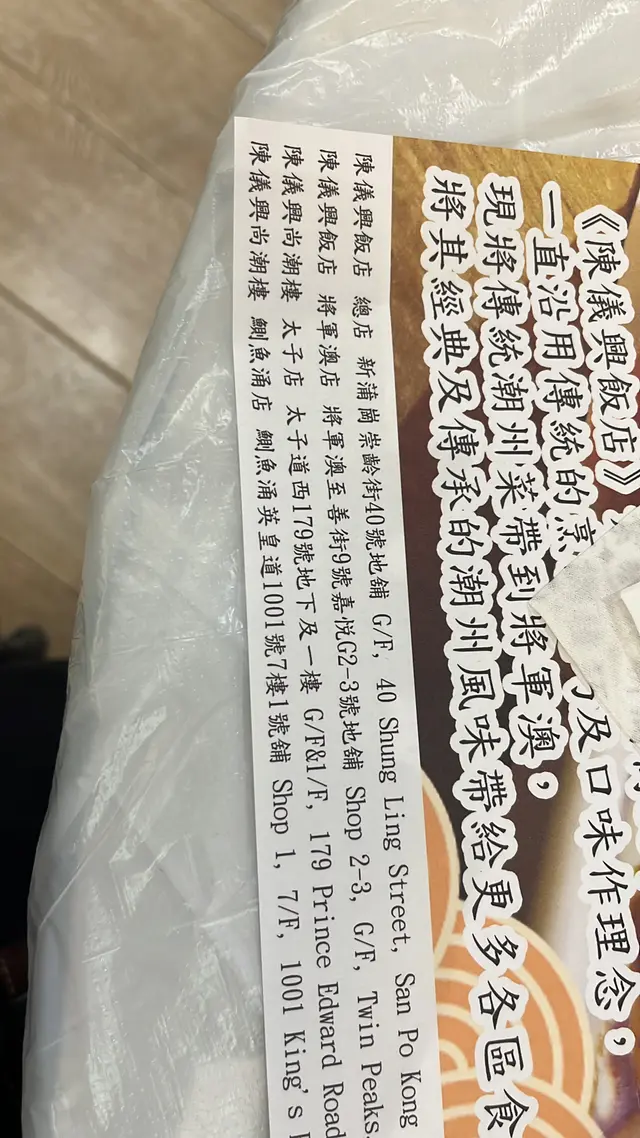 《陳儀興飯店》
一直沿用傳統的烹 及口味作理念，
現將傳統潮州菜帶到將軍澳，
將其經典及傳承的潮州風味帶給更多各區食
陳儀興飯店 總店 新蒲崗崇齡街40號地舖 G/F, 40 Shung Ling Street, San Po Kong
陳儀興飯店 將軍澳店 將軍澳至善街9號嘉悦G2-3號地舖 Shop 2-3, G/F, Twin Peaks,
陳儀興尚潮樓 太子店 太子道西179號地下及一樓 G/F&1/F, 179 Prince Edward Road
陳儀興尚潮樓 鰂魚涌店 鰂魚涌英皇道1001號7樓1號舖 Shop 1, 7/F, 1001 King's